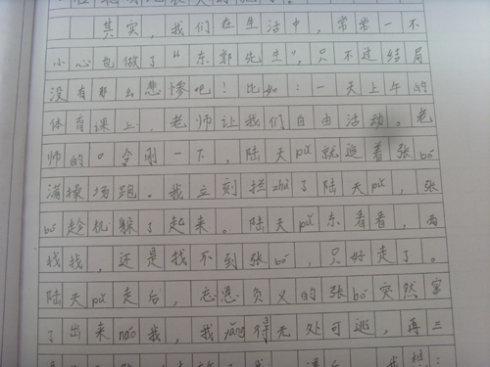 其实，我们在生活中，常常一不
小心也做了“东郭先生”，只不过结局
没有那么悲惨吧！比如：一天上午的
体育课上，老师让我们自由活动。老
师的口令刚一下，陆天pú就追着张bó
满操场跑。我立刻拦zhù了陆天pú，张
bó趁机躲了起来。陆天pú东看看，西
找找，还是找不到张bó，只好走了。
陆天pú走后，忘恩负义的张bó突然窜
了出来náo我，我yǎng得无处可逃，再三